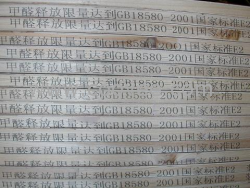 甲醛释放限量达到GB18580-2001国家标准
甲醛释放限量达到GB18580-2001国家标准E2
甲醛释放限量达到GB18580-2001国家标准E2
甲醛释放限量达到GB18580-2001国家标准E2
甲醛释放限量达到GB18580-2001国家标准E2
甲醛释放限量达到GB18580-2001国家标准E2
甲醛释放限量达到GB18580-2001国家标准E2
甲醛释放限量达到GB18580-2001国家标准E2
甲醛释放限量达到GB18580-2001国家标准E2
甲醛释放限量达到GB18580-2001国家标准E2